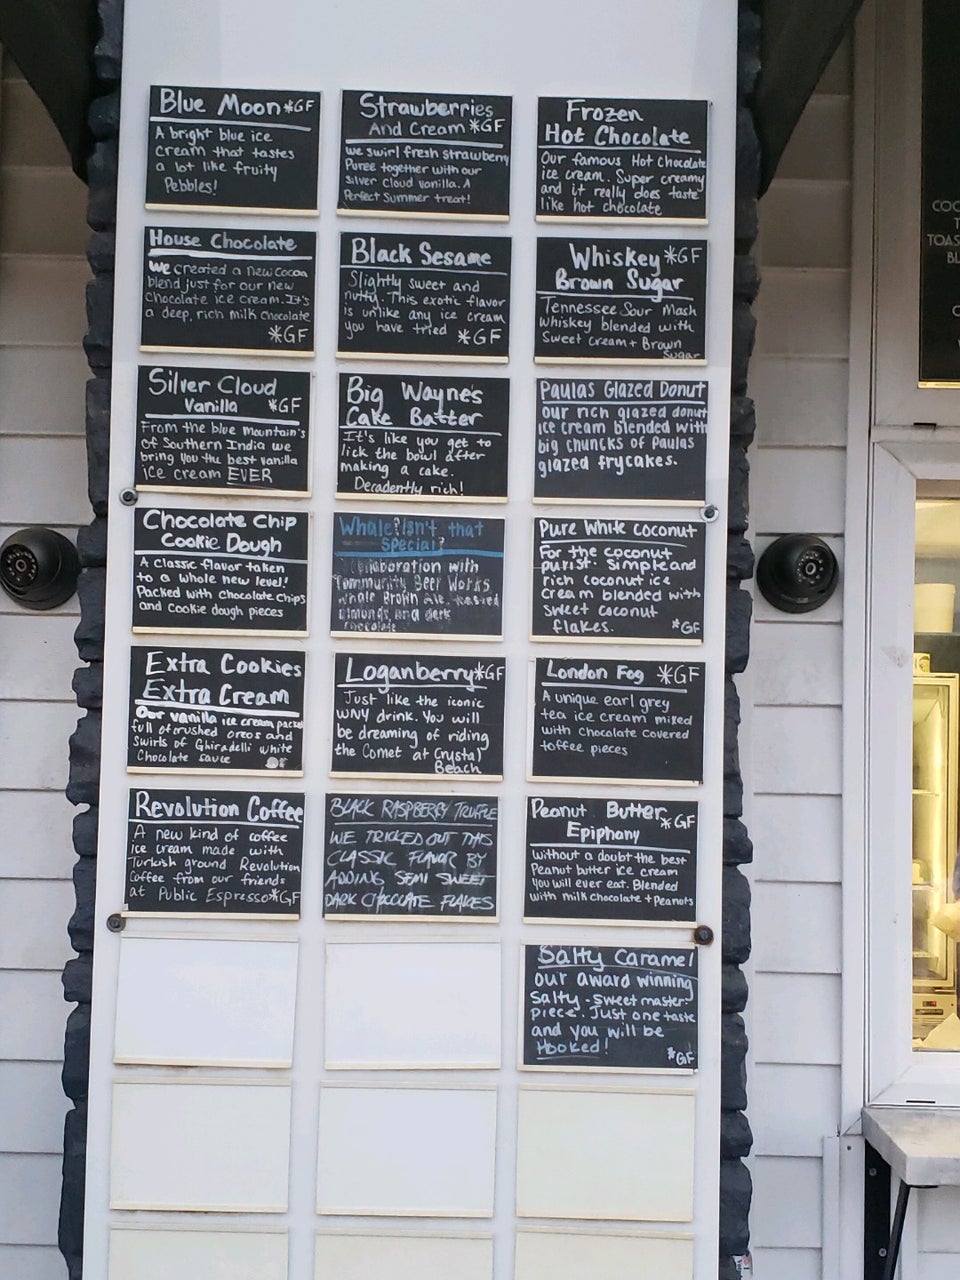 Blue Moon *GF
A bright blue ice
cream that tastes
a lot like fruity
Pebbles!
Strawberries
And Cream *GF
we swirl fresh strawberry
Puree together with our
Silver Cloud vanilla. A
Perfect Summer treat!
Frozen
Hot Chocolate
Our famous Hot Chocolate
ice cream. Super creamy
and it really does taste
like hot chocolate
House Chocolate
We created a new cocoa
blend just for our new
Chocolate ice cream. It's
a deep, rich milk chocolate
*GF
Black Sesame
Slightly sweet and
nutty. This exotic flavor
is unlike any ice cream
you have tried *GF
Whiskey *GF
Brown Sugar
Tennessee Sour Mash
Whiskey blended with
Sweet Cream + Brown
Sugar
Silver Cloud
Vanilla *GF
From the blue mountain's
of Southern India we
bring you the best vanilla
ice cream EVER
Big Wayne's
Cake Batter
It's like you get to
lick the bowl after
making a cake.
Decadently rich!
Paulas Glazed Donut
our rich glazed donut
ice cream blended with
big chuncks of Paulas
glazed frycakes.
Chocolate Chip
Cookie Dough
A classic flavor taken
to a whole new level!
Packed with chocolate chips
and cookie dough pieces
Whale? Isn't that
Special?
Collaboration with
Community Beer Works
Whale Brown Ale, toasted
almonds, and dark
chocolate.
Pure White Coconut
For the coconut
purist. Simple and
rich coconut ice
cream blended with
sweet coconut
flakes. *GF
Extra Cookies
Extra Cream
Our vanilla ice cream packed
full of crushed oreos and
swirls of Ghiradelli white
Chocolate sauce
Loganberry *GF
Just like the iconic
WNY drink. You will
be dreaming of riding
the Comet at Crystal
Beach
London Fog *GF
A unique earl grey
tea ice cream mixed
with chocolate covered
toffee pieces
Revolution Coffee
A new kind of coffee
ice cream made with
Turkish ground Revolution
Coffee from our friends
at Public Espresso *GF
BLACK RASPBERRY TRUFFLE
WE TRICKED OUT THIS
CLASSIC FLAVOR BY
ADDING SEMI SWEET
DARK CHOCOLATE FLAKES
Peanut Butter *GF
Epiphany
Without a doubt the best
Peanut butter ice cream
You will ever eat. Blended
with milk chocolate + Peanuts
Salty Caramel
our award winning
Salty-sweet master-
piece. Just one taste
and you will be
Hooked! *GF